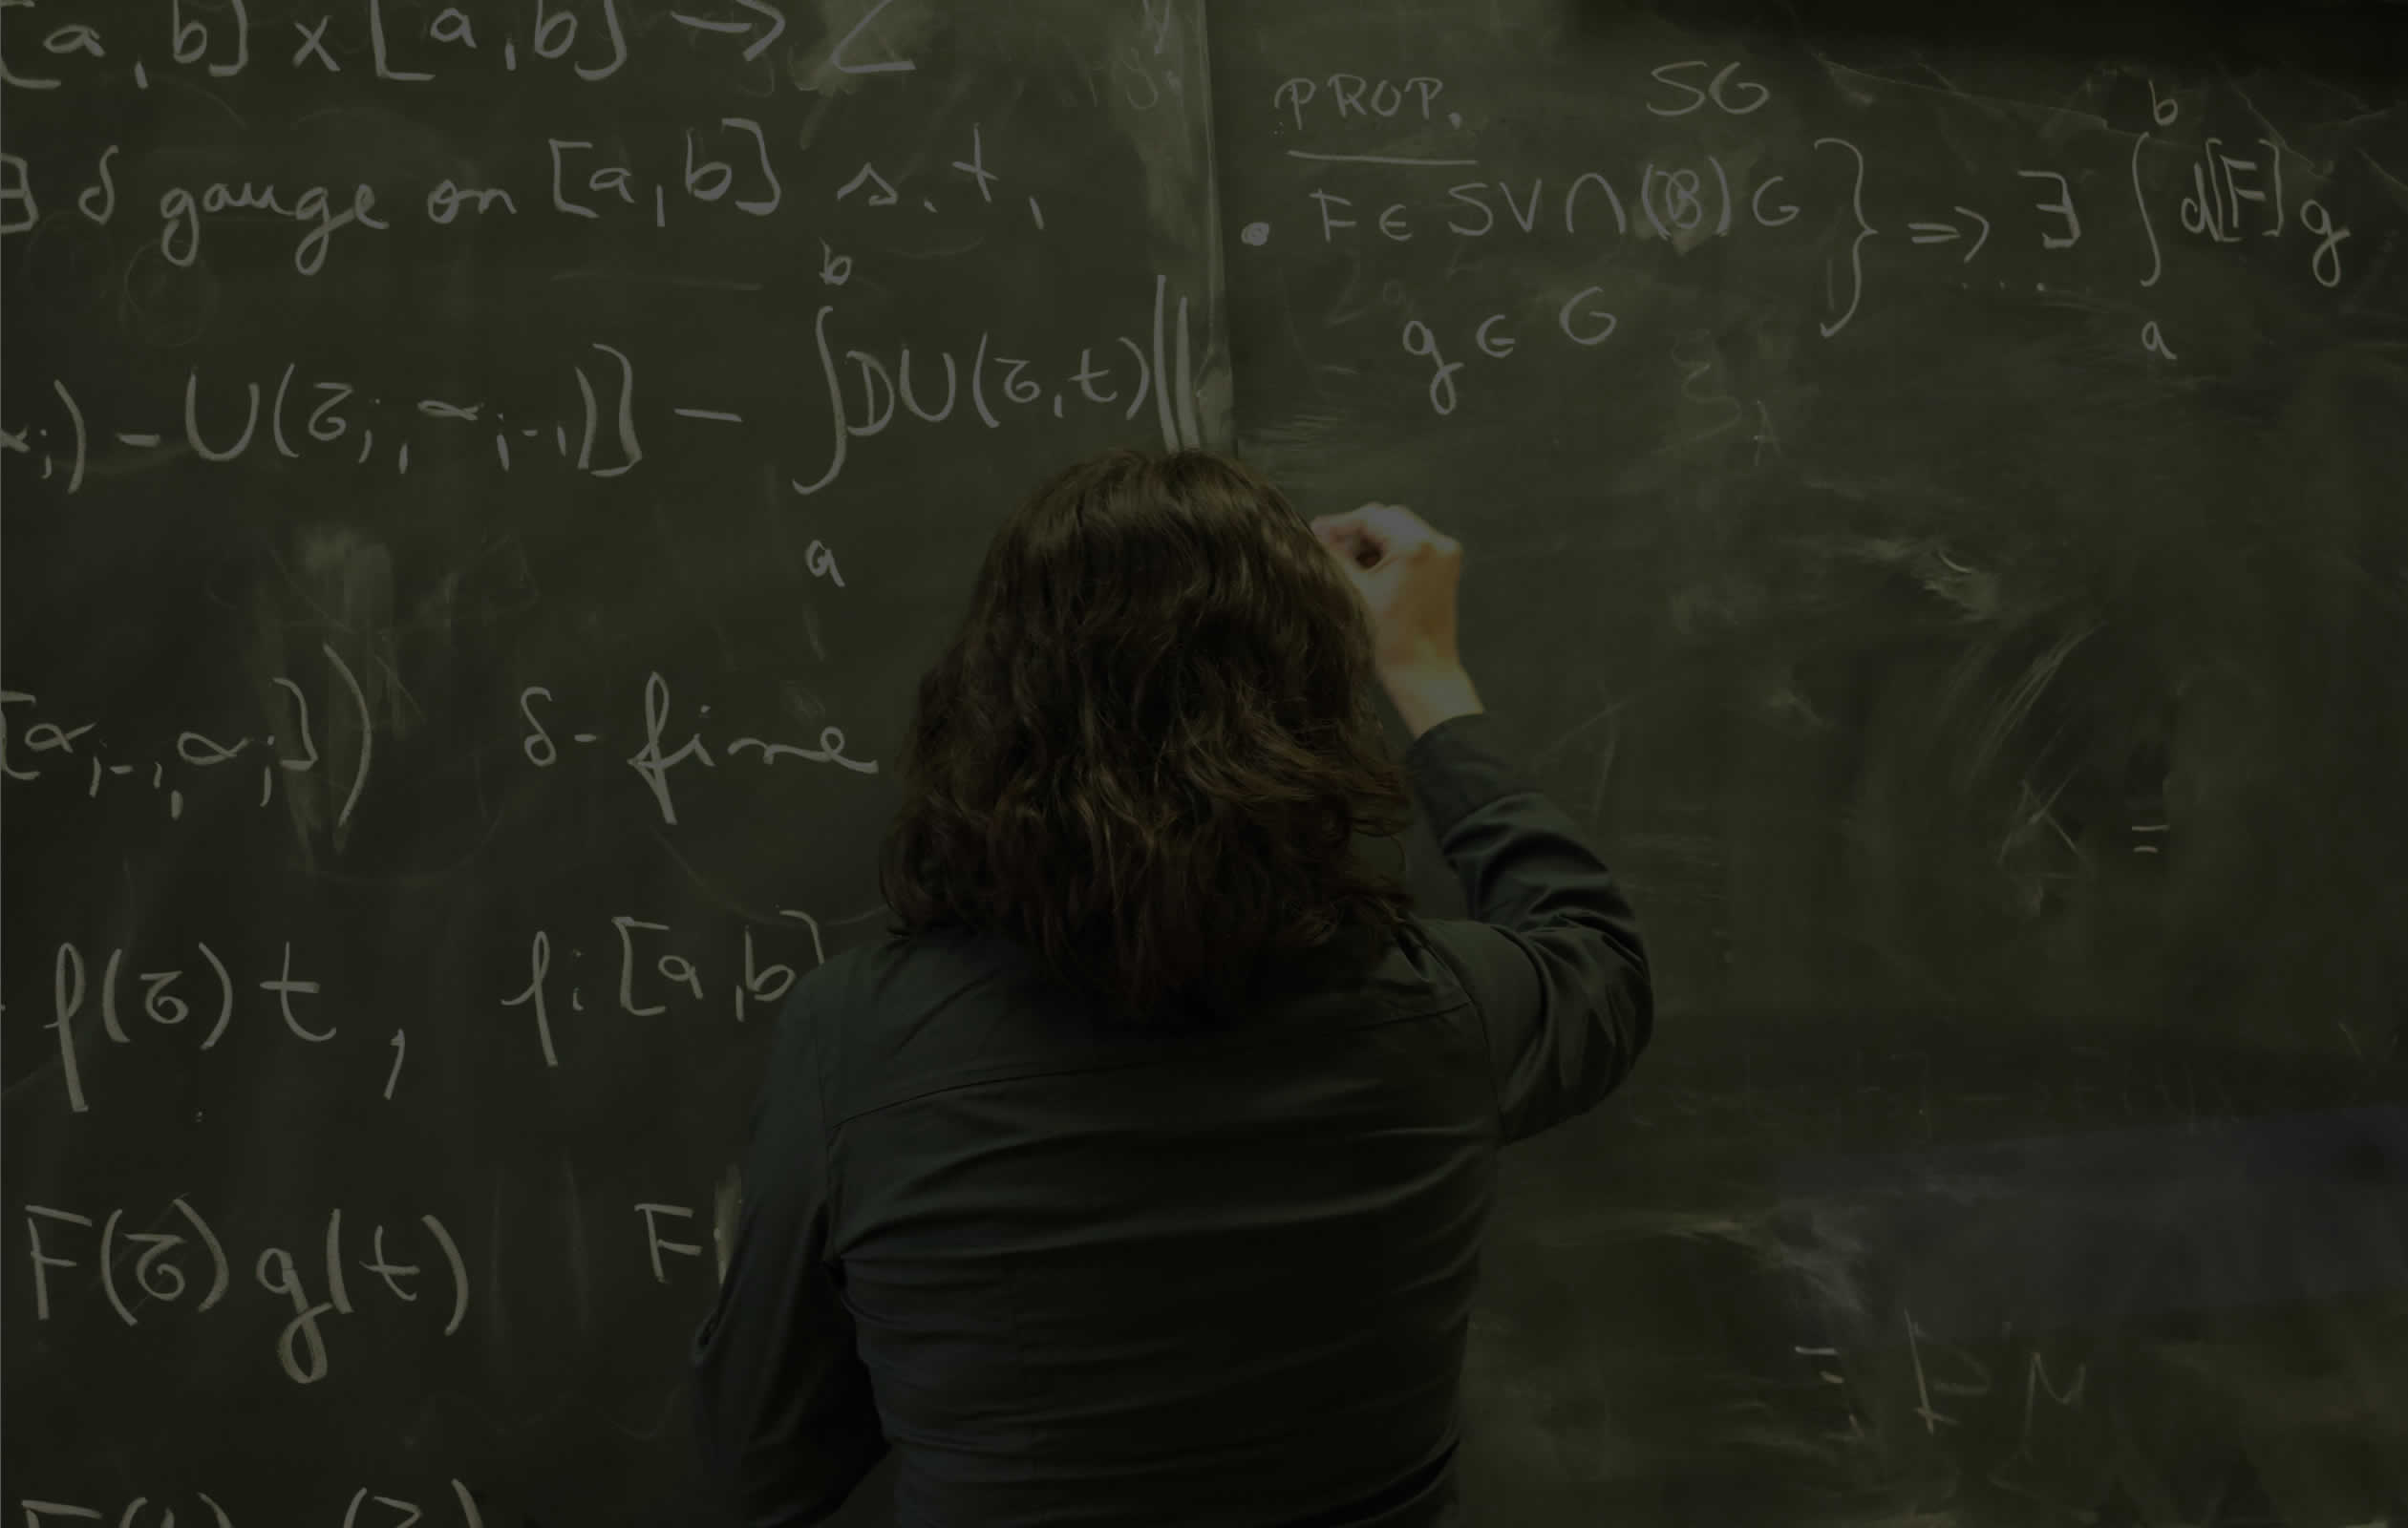 [a,b] x [a,b] →
∃ δ gauge on [a,b] s.t.
α_i) - U(τ_i, α_{i-1})] - ∫_a^b DU(τ,t)||
[α_{i-1}, α_i]) δ-fine
f(τ)t, f: [a,b]
F(τ)g(t) F
PROP. SG
• F ∈ SV ∩ (B)G } => ∃ ∫_a^b d[F]g
g ∈ G